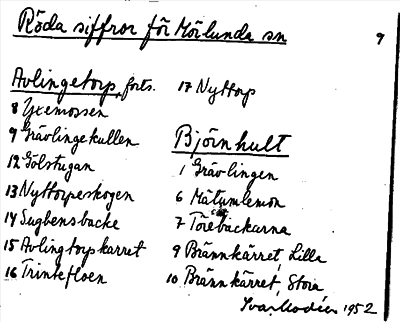 Röda siffror för Mörlunda sn
9
Avlingetorp, forts.
8 Yxemossen
9 Grävlingekullen
12 Gölstugan
13 Nyttorpeskogen
14 Sugbensbacke
15 Avlingtorpskärret
16 Trintefloen
17 Nyttorp
Björnhult
1 Grävlingen
6 Mätumlemon
7 Törebackarna
9 Brännkärret, Lilla
10 Brännkärret, Stora
Ivar Modéer 1952